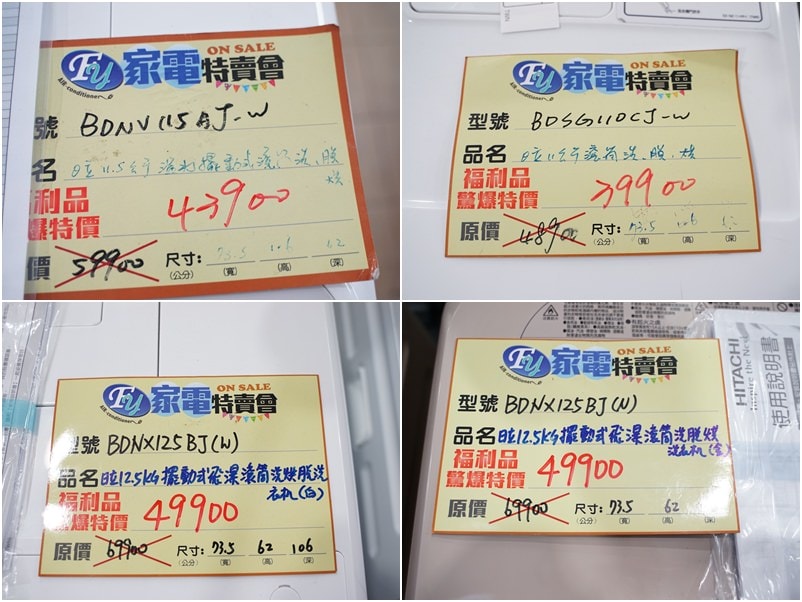 Fy 家電特賣會 ON SALE
Air conditioner
號 BDNV115AJ-W
名 日立11.5公斤溜水擺動式滾筒洗.脫
烘
福利品
驚爆特價 43900
價 59900 尺寸: 73.5 106 62
(公分) (寬) (高) (深)
Fy 家電特賣會 ON SALE
Air conditioner
型號 BDSG110CJ-W
品名 日立11公斤滾筒洗.脫.烘
福利品
驚爆特價 39900
原價 48900 尺寸: 73.5 106 62
(公分) (寬) (高) (深)
Fy 家電特賣會 ON SALE
Air conditioner
型號 BDNX125BJ(W)
品名 日立12.5KG擺動式飛瀑滾筒洗烘脫洗
衣机(白)
福利品
驚爆特價 49900
原價 69900 尺寸: 73.5 62 106
(公分) (寬) (高) (深)
Fy 家電特賣會 ON SALE
Air conditioner
型號 BDNX125BJ(N)
品名 日立12.5KG擺動式飛瀑滾筒洗脫烘
洗衣机(金)
福利品
驚爆特價 49900
原價 69900 尺寸: 73.5 62
(公分) (寬) (高) (深)
HITACHI
Inspire the Next
使用說明書